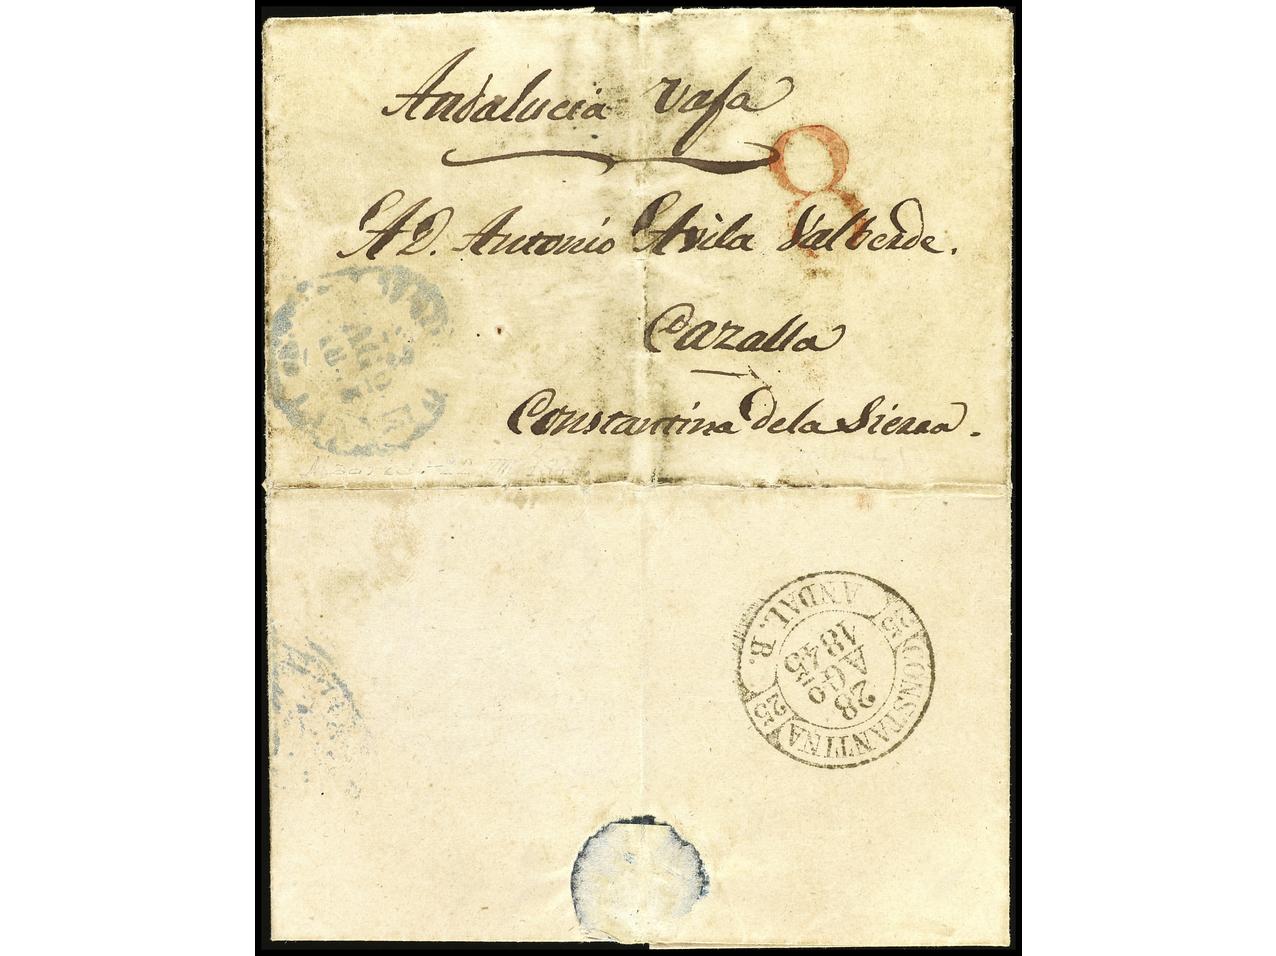 Andalucia vafa
8
A D. Antonio Avila Valverde.
Cazalla
Constantina de la Sierra.
CONSTANTINA
ANDAL. B.
28
AGO
1845